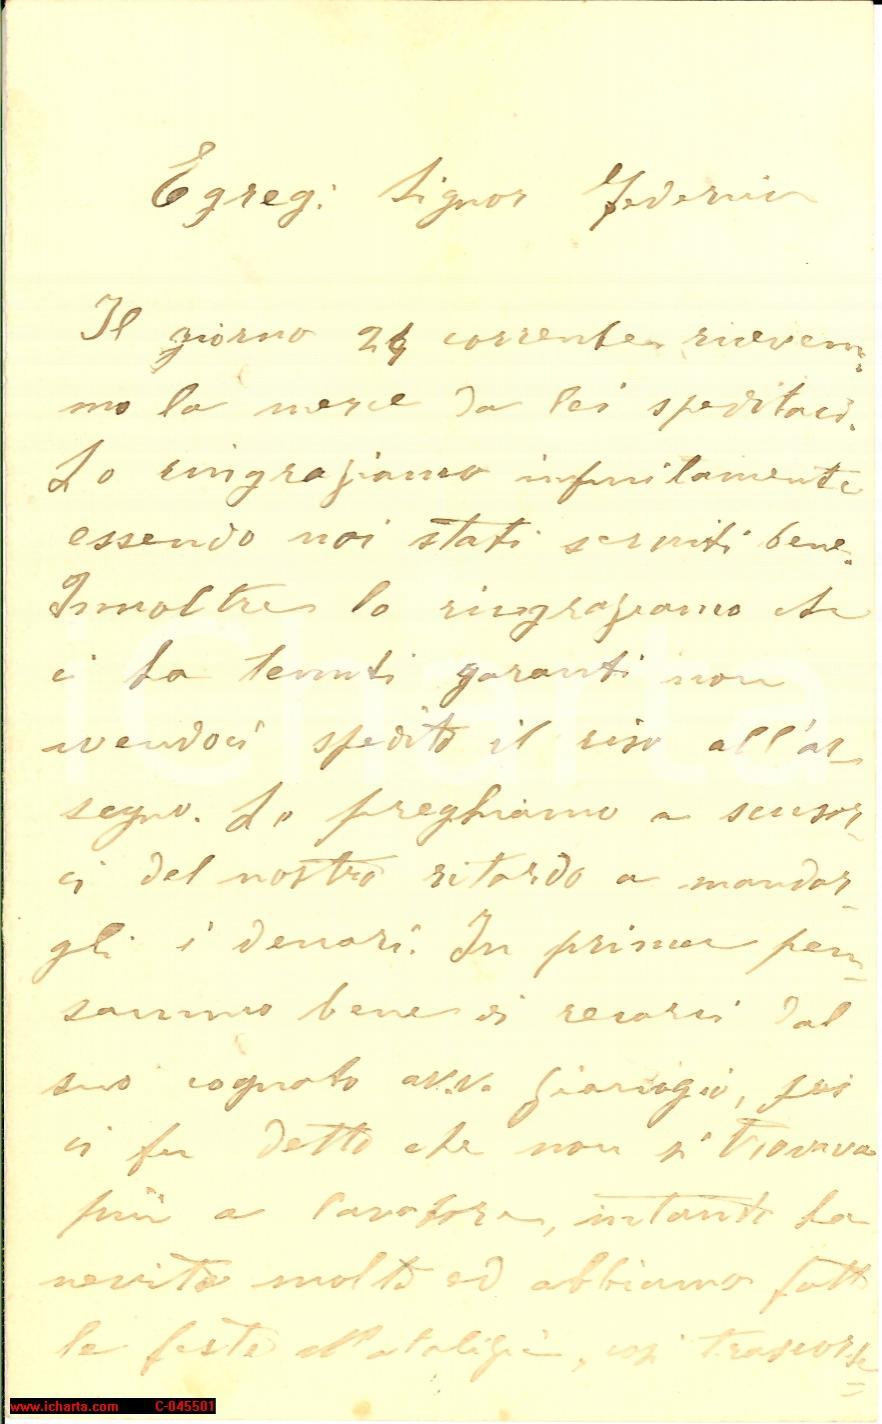 Egreg: Signor Federici
Il giorno 24 corrente ricevem:
mo la merce da lei speditaci.
Lo ringraziamo infinitamente
essendo noi stati serviti bene.
Inoltre lo ringraziamo che
ci ha tenuti garanti non
avendoci spedito il riso all'as_
segno. Lo preghiamo a scusar_
ci del nostro ritardo a mandar_
gli i denari. In prima pen_
sammo bene di recarci dal
suo cognato avv. poi
ci fu detto che non si trovava
più a lavorare, intanto ha
nevicato molto ed abbiamo fatto
le feste Natalizie, così trascorse
iCharta
www.icharta.com C-045501